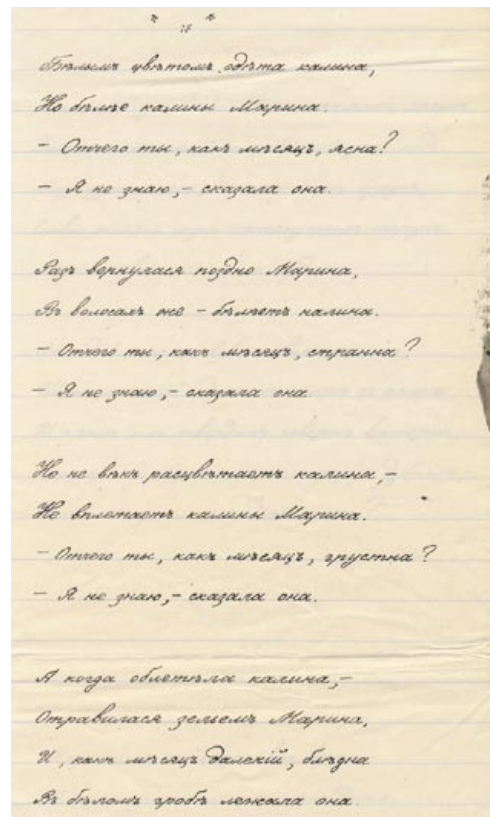 * * *
Бѣлымъ цвѣтомъ одѣта калина,
Но бѣлѣе калины Марина.
– Отчего ты, какъ мѣсяцъ, ясна?
– Я не знаю, – сказала она.
Разъ вернулася поздно Марина,
Въ волосахъ же – бѣлѣетъ калина.
– Отчего ты, какъ мѣсяцъ, странна?
– Я не знаю, – сказала она.
Но не вѣкъ расцвѣтаетъ калина, –
Не вплетаетъ калины Марина.
– Отчего ты, какъ мѣсяцъ, грустна?
– Я не знаю, – сказала она.
А когда облетѣла калина, –
Отравилася зельемъ Марина,
И, какъ мѣсяцъ далекій, блѣдна
Въ бѣломъ гробѣ лежала она.